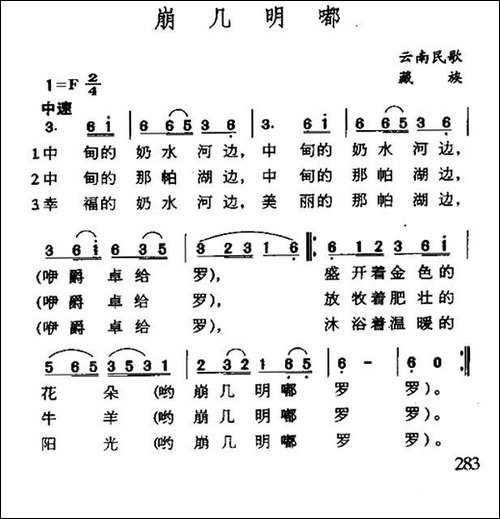 崩几明嘟
云南民歌
藏 族
1=F 2/4
中速
3· 6 i | 6 6 5 3 6 | 3· 6 i | 6 6 5 3 6 |
1中 甸的 奶水 河边, 中 甸的 奶水 河边,
2中 甸的 那帕 湖边, 中 甸的 那帕 湖边,
3幸 福的 奶水 河边, 美 丽的 奶水 河边,
3 6 i 6 3 5 | 3 2 3 1 6 :‖: 6 1 2 3 6 i |
(咿 爵 卓 给 罗), 盛开着金色的
(咿 爵 卓 给 罗), 放牧着肥壮的
(咿 爵 卓 给 罗), 沐浴着温暖的
5 6 5 3 5 3 1 | 2 3 2 1 6 5 | 6 - | 6 0 :‖
花 朵 (哟 崩几明嘟 罗 罗)。
牛 羊 (哟 崩几明嘟 罗 罗)。
阳 光 (哟 崩几明嘟 罗 罗)。
283